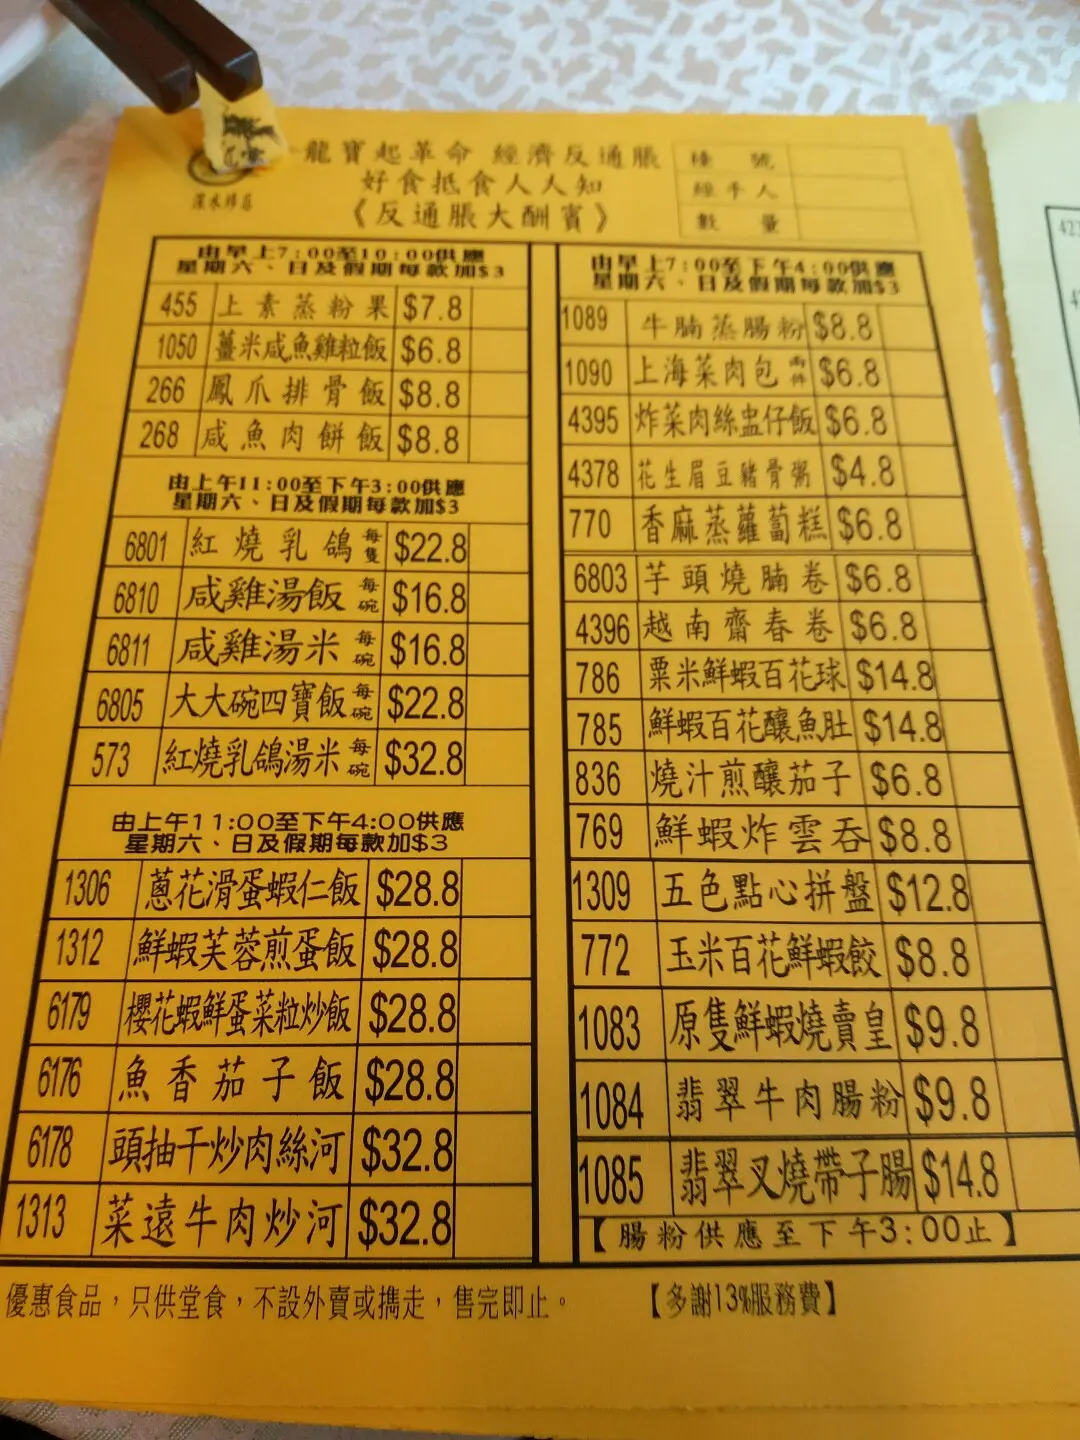 龍寶起革命 經濟反通脹
好食抵食人人知
《反通脹大酬賓》
深水埗店
檯 號
經手人
數 量
由早上7:00至10:00供應
星期六、日及假期每款加$3
455 上素蒸粉果 $7.8
1050 薑米咸魚雞粒飯 $6.8
266 鳳爪排骨飯 $8.8
268 咸魚肉餅飯 $8.8
由上午11:00至下午3:00供應
星期六、日及假期每款加$3
6801 紅燒乳鴿 每隻 $22.8
6810 咸雞湯飯 每碗 $16.8
6811 咸雞湯米 每碗 $16.8
6805 大大碗四寶飯 每碗 $22.8
573 紅燒乳鴿湯米 每碗 $32.8
由上午11:00至下午4:00供應
星期六、日及假期每款加$3
1306 蔥花滑蛋蝦仁飯 $28.8
1312 鮮蝦芙蓉煎蛋飯 $28.8
6179 櫻花蝦鮮蛋菜粒炒飯 $28.8
6176 魚香茄子飯 $28.8
6178 頭抽干炒肉絲河 $32.8
1313 菜遠牛肉炒河 $32.8
由早上7:00至下午4:00供應
星期六、日及假期每款加$3
1089 牛腩蒸腸粉 $8.8
1090 上海菜肉包 兩件 $6.8
4395 炸菜肉絲盅仔飯 $6.8
4378 花生眉豆豬骨粥 $4.8
770 香麻蒸蘿蔔糕 $6.8
6803 芋頭燒腩卷 $6.8
4396 越南齋春卷 $6.8
786 粟米鮮蝦百花球 $14.8
785 鮮蝦百花釀魚肚 $14.8
836 燒汁煎釀茄子 $6.8
769 鮮蝦炸雲吞 $8.8
1309 五色點心拼盤 $12.8
772 玉米百花鮮蝦餃 $8.8
1083 原隻鮮蝦燒賣皇 $9.8
1084 翡翠牛肉腸粉 $9.8
1085 翡翠叉燒帶子腸 $14.8
【腸粉供應至下午3:00止】
優惠食品，只供堂食，不設外賣或攜走，售完即止。
【多謝13%服務費】